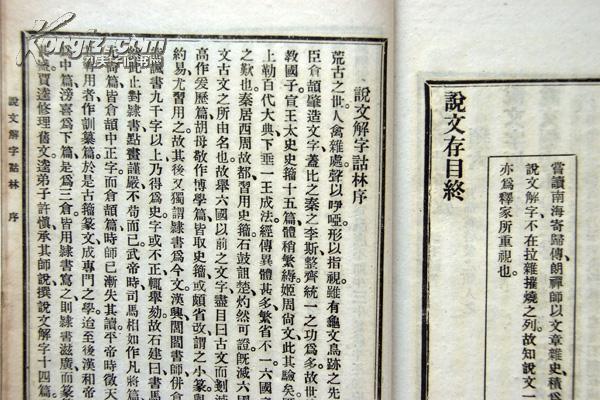 說文存目終
嘗讀南海寄歸傳朗禪師以文章雜史積為
說文解字不在拉雜摧燒之列故知說文一
亦為釋家所重視也
說文解字詁林序
荒古之世人禽雜處聲以呼啞形以指視雖有龜文鳥跡之先
臣倉頡肇造文字蓋比之秦之李斯整齊統一之功為多故世
教國子宣王太史史籀十五篇體稍繁縟姬周尙文此其驗矣
上勒百代大典下垂一王成法經傳異體甚多繁省不一六國
之歟也秦居西周故都習用史籀石鼓詛楚灼然可證旣滅六國
文古文之所由名也故舉六國以前之文字盡目曰古文而剗滅
高作爰歷篇胡母敬作博學篇皆取史籀或頗省改謂之小篆與
約易尤習用之故其後又獨謂隸書為今文漢興閭閻書師併倉
諷書九千字以上乃得為史字或不正輒舉劾故石建曰書馬
此止對隸書點畫謹嚴不苟而已武帝時司馬相如作凡將篇
篇皆倉頡中正字而倉頡篇時師已漸失其讀平帝時徵天
用者作訓纂篇於是古籀篆文成專門之學迨至後漢和帝
中篇滂喜為下篇是為三倉皆用隸書寫之則隸書滋廣而篆
賈逵修理舊文逵弟子許愼承其師說撰說文解字十四篇
說文解字詁林 序